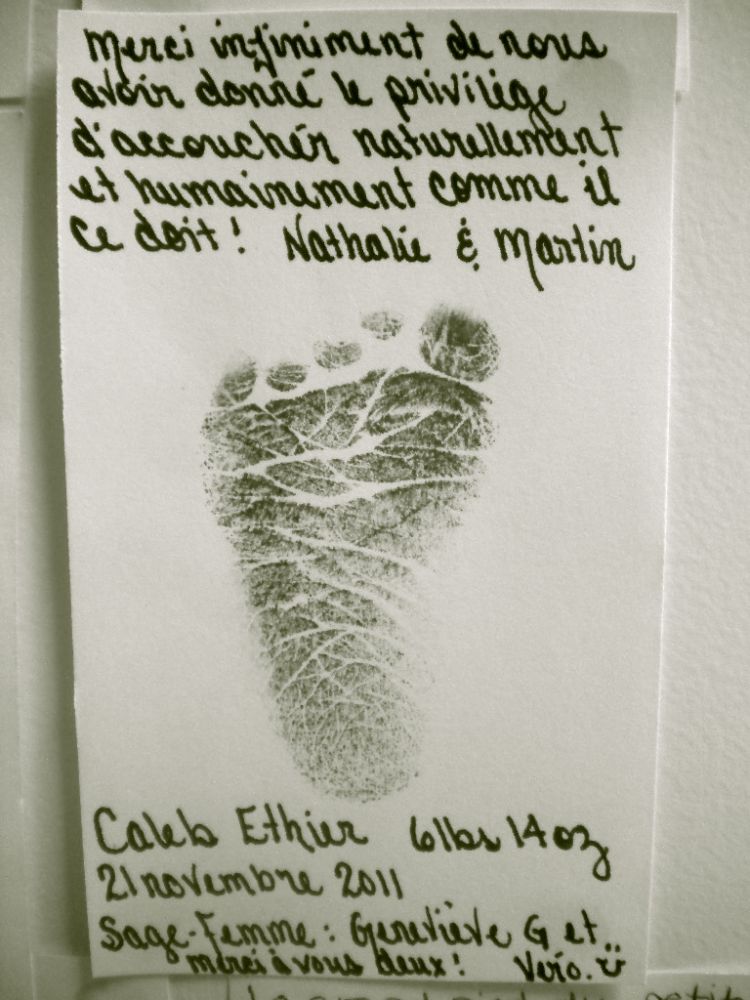 Merci infiniment de nous
avoir donné le privilège
d'accouchér naturellement
et humainement comme il
ce doit! Nathalie & Martin
Caleb Ethier 6lbs 14oz
21 novembre 2011
Sage-Femme: Geneviève G et
merci à vous deux! Véro.